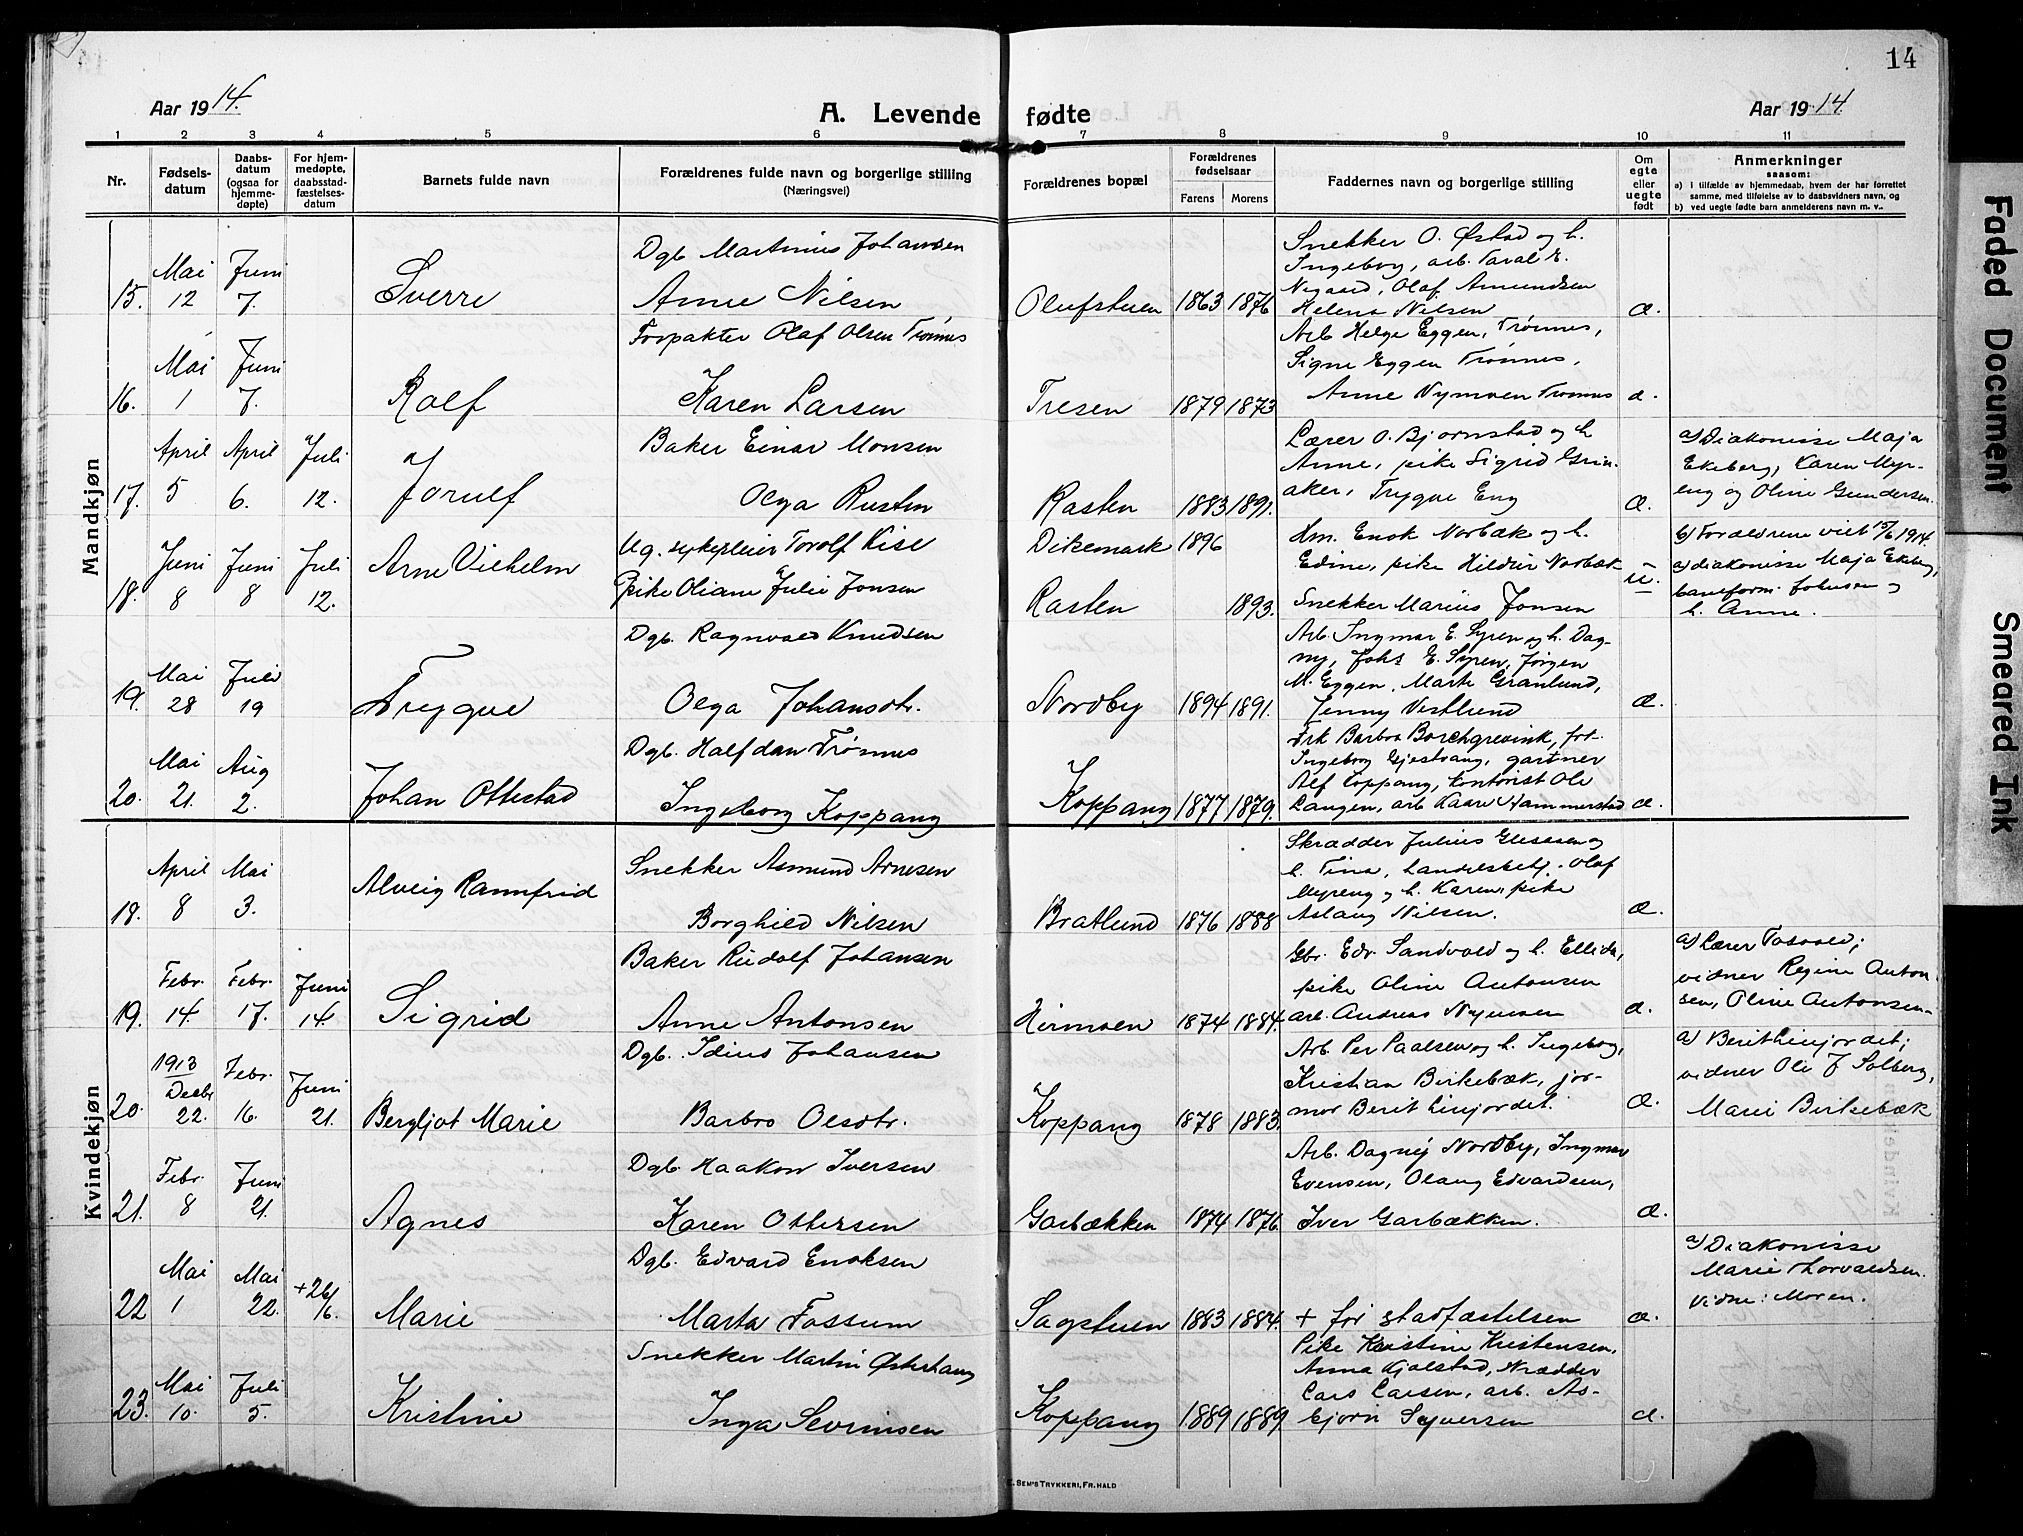 14
Aar 1914.
A. Levende fødte
Aar 1914.
1 2 3 4 5 6 7 8 9 10 11
Nr.
Fødsels-
datum
Daabs-
datum
(ogsaa for
hjemme-
døpte)
For hjem-
medøpte,
daabsstad-
fæstelses-
datum
Barnets fulde navn
Forældrenes fulde navn og borgerlige stilling
(Næringsvei)
Forældrenes bopæl
Forældrenes
fødselsaar
Farens Morens
Faddernes navn og borgerlige stilling
Om
egte
eller
uegte
født
Anmerkninger
saasom:
a) i tilfælde av hjemmedaab, hvem der har forrettet
samme, med tilføielse av to daabsvidners navn, og
b) ved uegte fødte barn anmelderens navn m. v..
Mandkjøn
15. Mai 12 Juni 7. Sverre
Dgb. Martinius Johansen
Anne Nilsen
Olufstuen 1863 1876
Snekker O. Østad og h.
Ingeborg, arb.
Olaf Amundsen
Helena Nilsen
Æ.
16. Mai 1 Juni 7. Rolf
Forpakter Olaf Olsen Trønnes
Karen Larsen
Tresen 1879 1873
Arb Helge Eggen, Trønnes,
Signe Eggen Trønnes,
Anne Nymoen Trønnes
Æ.
17. April 5 April 6. Juli 12. Jorulf
Baker Einar Monsen
Olga Rusten
Rasten 1883 1891.
Lærer O. Bjørnstad og h
Anne, pike Sigrid Grin-
aker, Trygve Eng
Æ.
a) Diakonisse Maja
Ekeberg, Karen Myr-
eng og Oline Gundersen.
18. Juni 8 Juni 8 Juli 12. Arne Vilhelm
Ug. sykepleier Torolf Kise
Pike Oliane Julie Jonsen
Dikemark 1896
Rasten 1893.
Hm. Enok Norbæk og h.
Edine, pike Hildur Norbæk
Snekker Marius Jonsen
U.
b) Forældrene viet 15/6 1914.
a) diakonisse Maja Ekeberg,
baneform. Johnsen og
h. Anne.
19. Mai 28 Juli 19 Trygve
Dgb. Ragnvald Knudsen
Olga Johansdtr.
Nordby 1894 1891.
Arb. Ingmar E. Syren og h. Dag-
ny, Johs E. Syren, Jørgen
M. Eggen, Marte Granlund,
Jenny Vestlund
Æ.
20. Mai 21. Aug 2. Johan Ottestad
Dgb. Halfdan Trønnes
Ingeborg Koppang
Koppang 1877 1879.
Frk Barbra Borchgrevink, frk.
Ingeborg Gjestvang, gartner
Alf Koppang, kontorist Ole
Langen, arb Kaare Hammerstad
Æ.
Kvindekjøn
18. April 8 Mai 3. Alveig Rannfrid
Snekker Asmund Arnesen
Borghild Nilsen
Bratlund 1876 1888
Skrædder Julius Glesaaen og
h. Tina, Landhskelf. Olaf
Myreng og h. Karen, pike
Aslaug Nilsen.
Æ.
19. Febr. 14. Febr. 17. Juni 14. Sigrid
Baker Rudolf Johansen
Anne Antonsen
Hirmoen 1874 1884.
Gbr. Edv. Sandvold og h. Ellida,
pike Oline Antonsen
arb. Andreas Nymoen
Æ.
a) Lærer Fosvold;
vidner Regine Anton-
sen, Oline Antonsen
20. 1913 Decbr 22. Febr. 16. Juni 21. Bergljot Marie
Dgb. Idius Johansen
Barbro Olsdtr.
Koppang 1878 1883.
Arb. Per Paalsen og h. Ingeborg,
Kristian Birkebæk, jor-
mor Berit Linjordet.
Æ.
a) Berit Linjordet;
vidner Ole J Solberg,
Marie Birkebæk
21. Febr. 8 Juni 21. Agnes
Dgb. Haakon Iversen
Karen Ottersen
Garbækken 1874 1876.
Arb. Dagny Nordby, Ingmar
Evensen, Olaug Edvardsen,
Iver Garbækken.
Æ.
22 Mai 1 Mai 22. +26/6. Marie
Dgb. Edvard Enoksen
Marta Fossum
Sagstuen 1883 1884.
+ før stadfæstelsen
Æ.
a) Diakonisse
Marie Thorvaldsen.
Vidne: Moren.
23. Mai 10. Juli 5. Kristine
Snekker Martin Østerhaug
Inga Sevrinsen
Koppang 1889 1889.
Pike Kristine Kristensen,
Anna Kjølstad,
Lars Larsen, arb. As-
bjørn Syversen
Æ.
E. SEM'S TRYKKERI, FR. HALD
Faded Document
Smeared Ink